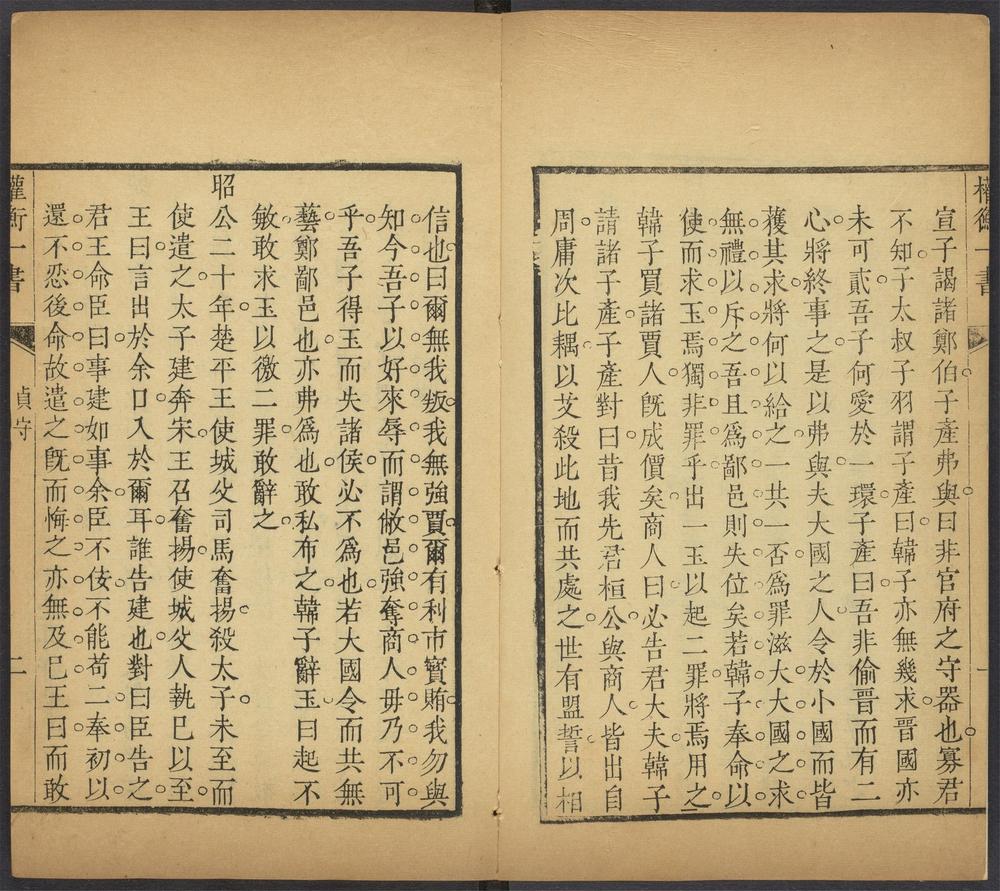 權衡一書
一
宣子謁諸鄭伯子產弗與曰非官府之守器也寡君
不知子太叔子羽謂子產曰韓子亦無幾求晉國亦
未可貳吾子何愛於一環子產曰吾非偷晉而有二
心將終事之是以弗與夫大國之人令於小國而皆
獲其求將何以給之一共一否為罪滋大大國之求
無禮以斥之吾且為鄙邑則失位矣若韓子奉命以
使而求玉焉獨非罪乎出一玉以起二罪將焉用之
韓子買諸賈人旣成價矣商人曰必告君大夫韓子
請諸子產子產對曰昔我先君桓公與商人皆出自
周庸次比耦以艾殺此地而共處之世有盟誓以相
信也曰爾無我叛我無強賈爾有利市寳賄我勿與
知今吾子以好來辱而謂敝邑強奪商人毋乃不可
乎吾子得玉而失諸侯必不為也若大國令而共無
藝鄭鄙邑也亦弗為也敢私布之韓子辭玉曰起不
敏敢求玉以徼二罪敢辭之
昭公二十年楚平王使城父司馬奮揚殺太子未至而
使遣之太子建奔宋王召奮揚使城父人執巳以至
王曰言出於余口入於爾耳誰告建也對曰臣告之
君王命臣曰事建如事余臣不佞不能苟二奉初以
還不忍後命故遣之旣而悔之亦無及巳王曰而敢
權衡一書
貞守
二